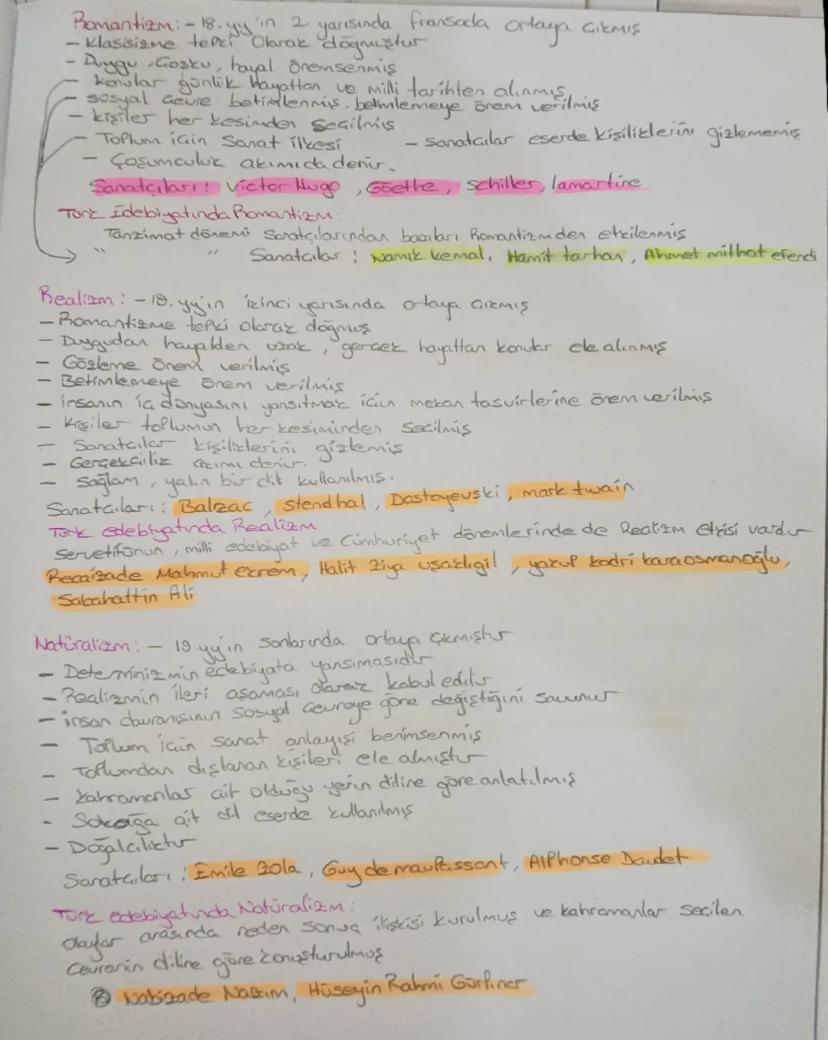 Romantizm: - 18.yy'ın 2. yarısında fransada ortaya çıkmış
- Klasisizme tepki olarak doğmuştur
- Duygu, Coşku, hayal önemsenmiş
- konular günlük hayattan ve milli tarihten alınmış
- sosyal çevre betimlenmiş. betimlemeye önem verilmiş
- kişiler her kesimden seçilmiş
- Toplum için Sanat ilkesi - sanatçılar eserde kişiliklerini gizlememiş
- Coşumculuk akımıda denir.
Sanatçıları: Victor Hugo, Goethe, schiller, lamartine
Türk Edebiyatında Romantizm:
Tanzimat dönemi Sanatçılarından bazıları Romantizmden etkilenmiş
" " Sanatçılar: Namık kemal, Hamit tarhan, Ahmet mithat efendi
Realizm: - 18.yy'ın ikinci yarısında ortaya çıkmış
- Romantizme tepki olarak doğmuş
- Duygudan hayalden uzak, gerçek hayattan konular ele alınmış
- Gözleme önem verilmiş
- Betimlemeye önem verilmiş
- insanın iç dünyasını yansıtmak için mekan tasvirlerine önem verilmiş
- Kişiler toplumun her kesiminden seçilmiş
- Sanatçılar kişiliklerini gizlemiş
- Gerçekçilik akımı denir.
- Sağlam, yalın bir dil kullanılmış.
Sanatçıları: Balzac, Stendhal, Dostoyevski, mark twain
Türk edebiyatında Realizm
servetifünun, milli edebiyat ve Cumhuriyet dönemlerinde de Realizm etkisi vardır
Recaizade Mahmut ekrem, Halit Ziya uşaklıgil, yakup kadri karaosmanoğlu,
Sabahattin Ali
Natüralizm: - 19.yy'ın sonlarında ortaya çıkmıştır
- Determinizmin edebiyata yansımasıdır
- Realizmin ileri aşaması olarak kabul edilir
- insan davranışının sosyal çevreye göre değiştiğini savunur
- Toplum için sanat anlayışı benimsenmiş
- Toplumdan dışlanan kişileri ele almıştır
- kahramanlar ait olduğu yerin diline göre anlatılmış
- Sokağa ait dil eserde kullanılmış
- Doğalcılıktır
Sanatçıları: Emile Zola, Guy de maupassant, Alphonse Daudet
Türk edebiyatında Natüralizm:
olaylar arasında neden sonuç ilişkisi kurulmuş ve kahramanlar seçilen
çevrenin diline göre konuşturulmuş
Nabizade Nazım, Hüseyin Rahmi Gürpınar